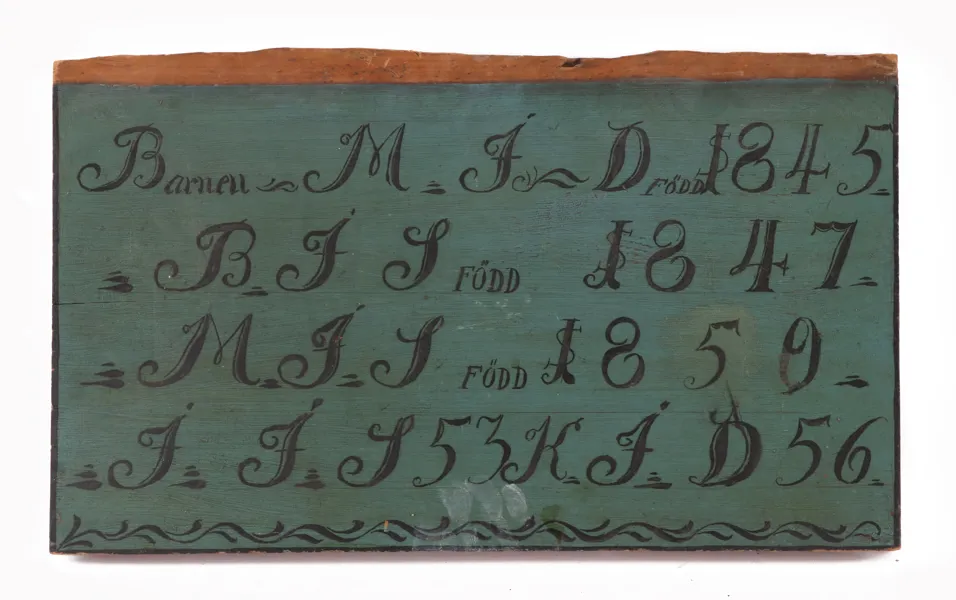 Barnen M. J. D FÖDD 1845
B. J S FÖDD 1847
M. J. S FÖDD 1859
J. J. S 53 K. J. D 56